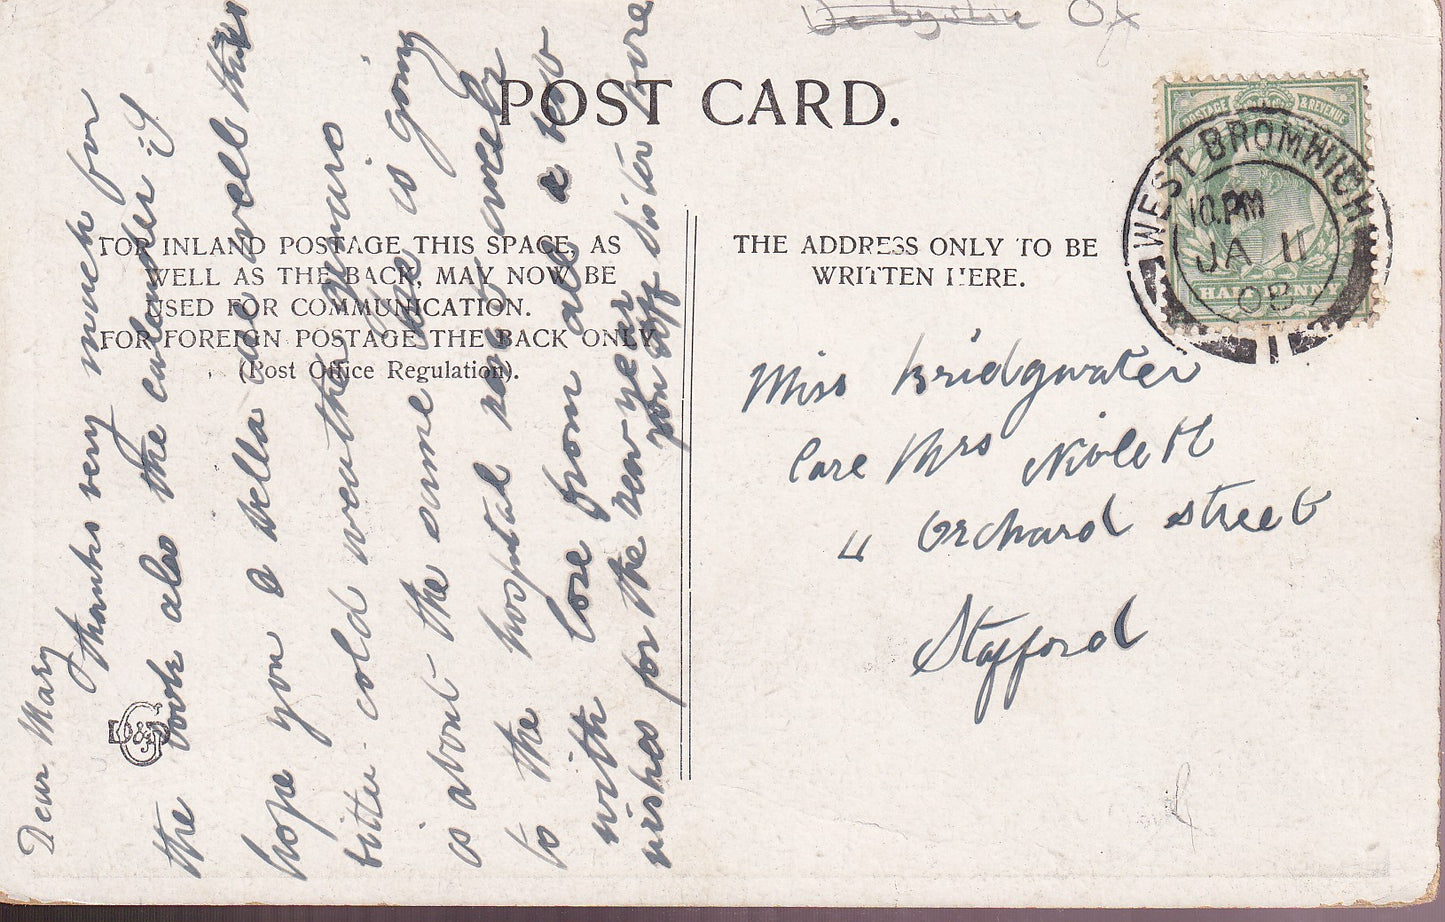 Derbyshire Ox
POST CARD.
POSTAGE & REVENUE
HALF PENNY
WEST BROMWICH
10.PM
JA 11
08
1
FOR INLAND POSTAGE THIS SPACE, AS
WELL AS THE BACK, MAY NOW BE
USED FOR COMMUNICATION.
FOR FOREIGN POSTAGE THE BACK ONLY
(Post Office Regulation).
THE ADDRESS ONLY TO BE
WRITTEN HERE.
Miss Bridgwater
Care Mrs Niblett
4 Orchard street
Stafford
D&D
G
Dear Mary
thanks very much for
the book also the calender
hope you & Nella are well this
bitter cold weather
is about the same he is going
to the hospital
with love from all
wishes for the new year